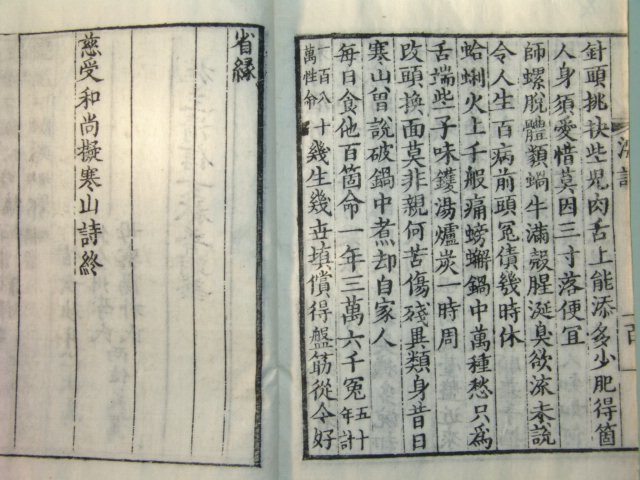 針頭挑抉些兒肉舌上能添多少肥得箇
人身須愛惜莫因三寸落便宜
師螺脫體顙蝸牛滿殼腥涎臭欲流未說
令人生百病前頭冤債幾時休
蛤蜊火上千般痛螃蠏鍋中萬種愁只爲
舌端些子味鑊湯爐炭一時周
改頭換面莫非親何苦傷殘異類身昔日
寒山曾說破鍋中煮却自家人
每日食他百箇命一年三萬六千冤五十年計
一百八十萬性命幾生幾世塡償得盤筋從今好
省緣
慈受和尚擬寒山詩終